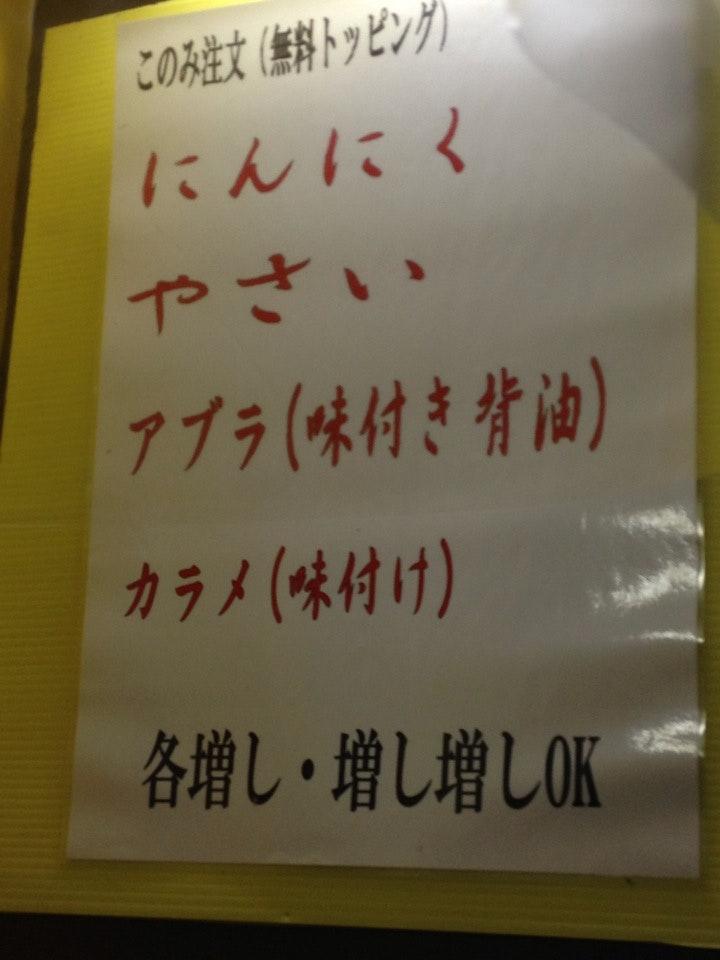 このみ注文（無料トッピング）
にんにく
やさい
アブラ（味付き背油）
カラメ（味付け）
各増し・増し増しOK